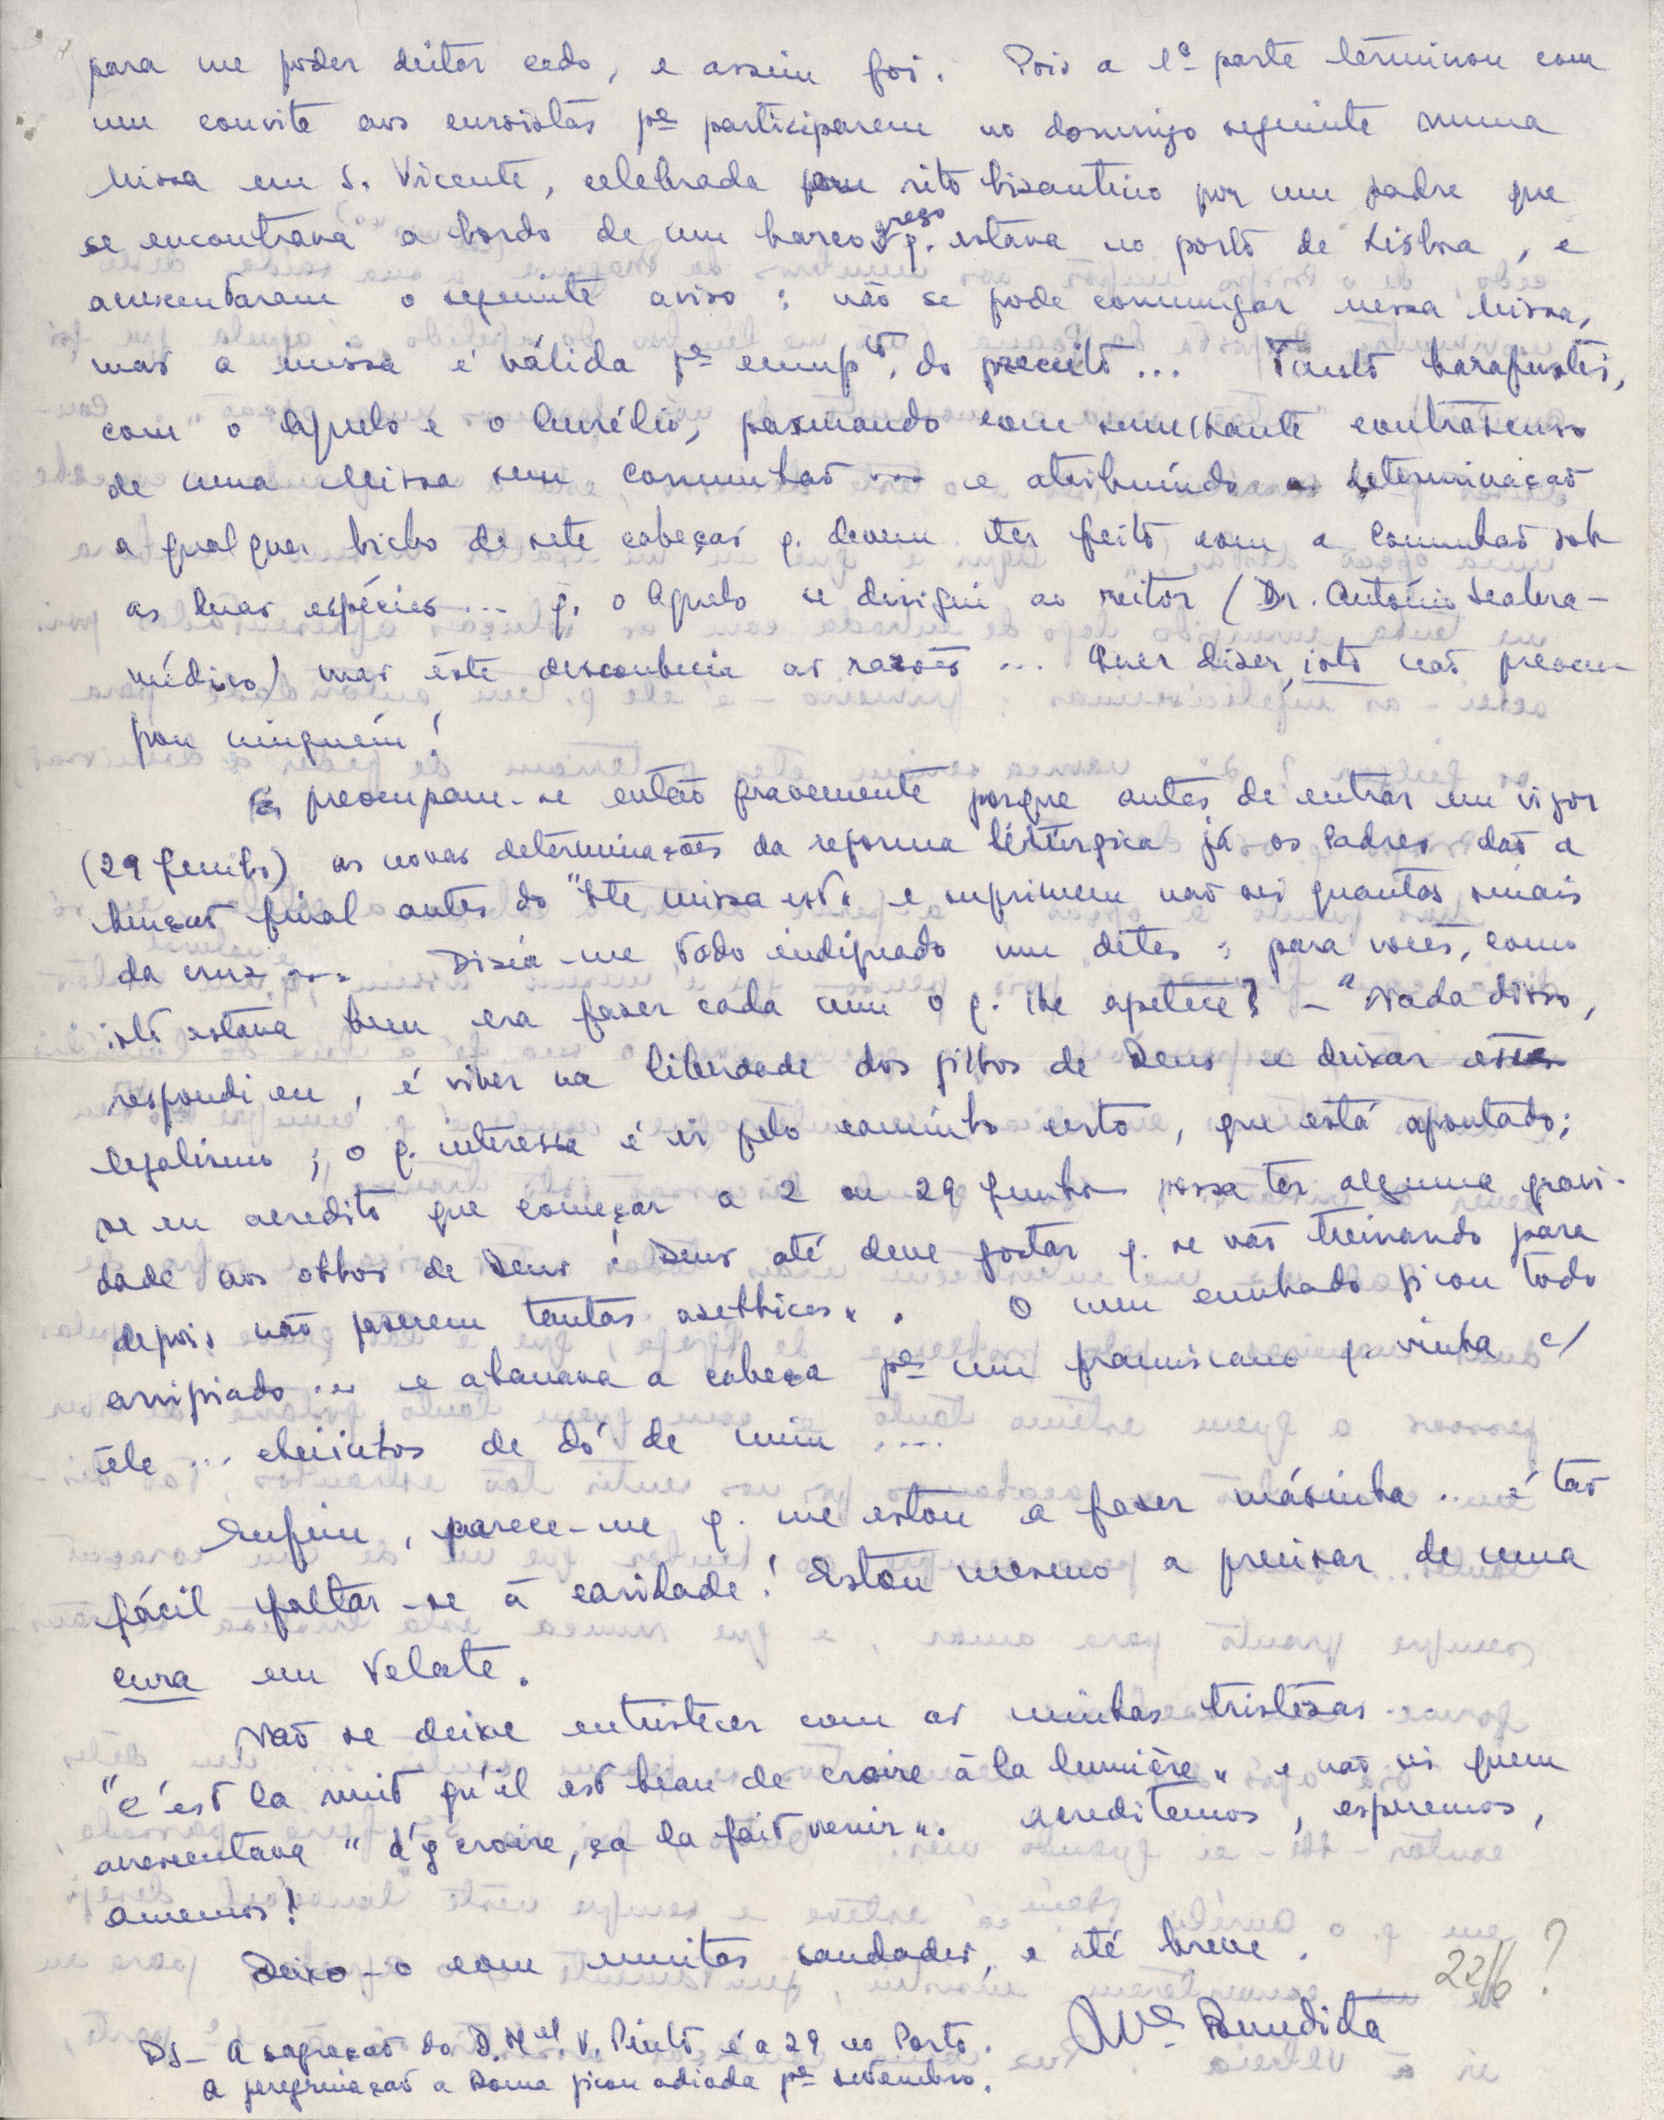 para me poder deitar cedo, e assim foi. Pois a 1ª parte terminou com
um convite aos cursistas pª participarem no domingo seguinte numa
Missa em S. Vicente, celebrada em rito bizantino por um padre que
se encontrava a bordo de um barco grego q. estava no porto de Lisboa, e
acrescentaram o seguinte aviso: não se pode comungar nessa Missa,
mas a missa é válida pª cump.to do preceito... Tanto barafustei,
com o Agnelo e o Aurélio, pasmando com semelhante contrasenso
de uma Missa sem Comunhão ... e atribuindo a determinação
a qualquer bicho de sete cabeças q. devem ter feito com a Comunhão sob
as duas espécies ... q. o Agnelo se dirigiu ao reitor (Dr. António Seabra-
médico) mas êste desconhecia as razões ... Quer dizer, isto não preocu-
pou ninguém!
preocupam-se então gravemente porque antes de entrar em vigor
(29 Junho) as novas determinações da reforma litúrgica já os Padres dão a
benção final antes do "Ite missa est" e suprimem não sei quantos sinais
da cruz ... Dizia-me todo indignado um dêles: para vocês, como
isto estava bem era fazer cada um o q. lhe apetece? - "Nada disso,
respondi eu, é viver na liberdade dos filhos de Deus e deixar esse
legalismo; o q. interessa é ir pelo caminho certo, que está apontado;
se eu acredito que começar a 2 ou 29 Junho possa ter alguma gravi-
dade aos olhos de Deus! Deus até deve gostar q. se vão treinando para
depois não fazerem tantas aselhices". O meu cunhado ficou todo
arripiado ... e abanava a cabeça pª um franciscano q. vinha c/
êle ... cheiinhos de dó de mim ....
Enfim, parece-me q. me estou a fazer màzinha ... é tão
fácil faltar-se à caridade! Estou mesmo a precisar de uma
cura em Velate.
Não se deixe entristecer com as minhas tristezas.
"C'est la nuit qu'il est beau de croire à la lumière" e não sei quem
acrescentava "d'y croire, ça la fait venir". Acreditemos, esperemos,
amemos!
Deixo-o com muitas saudades, e até breve.
22/6?
Mª Benedita
PS- A sagração do D. Mel V. Pinto é a 29 no Porto.
A peregrinação a Roma ficou adiada pª setembro.